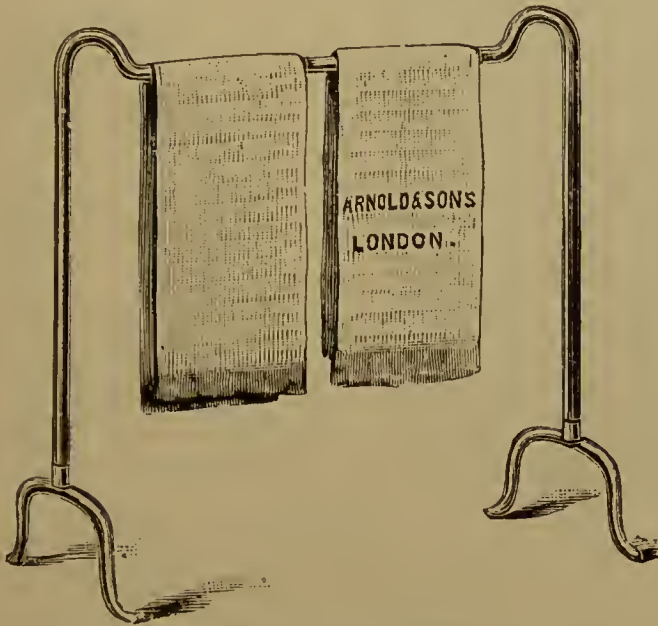 ARNOLD & SONS
LONDON.